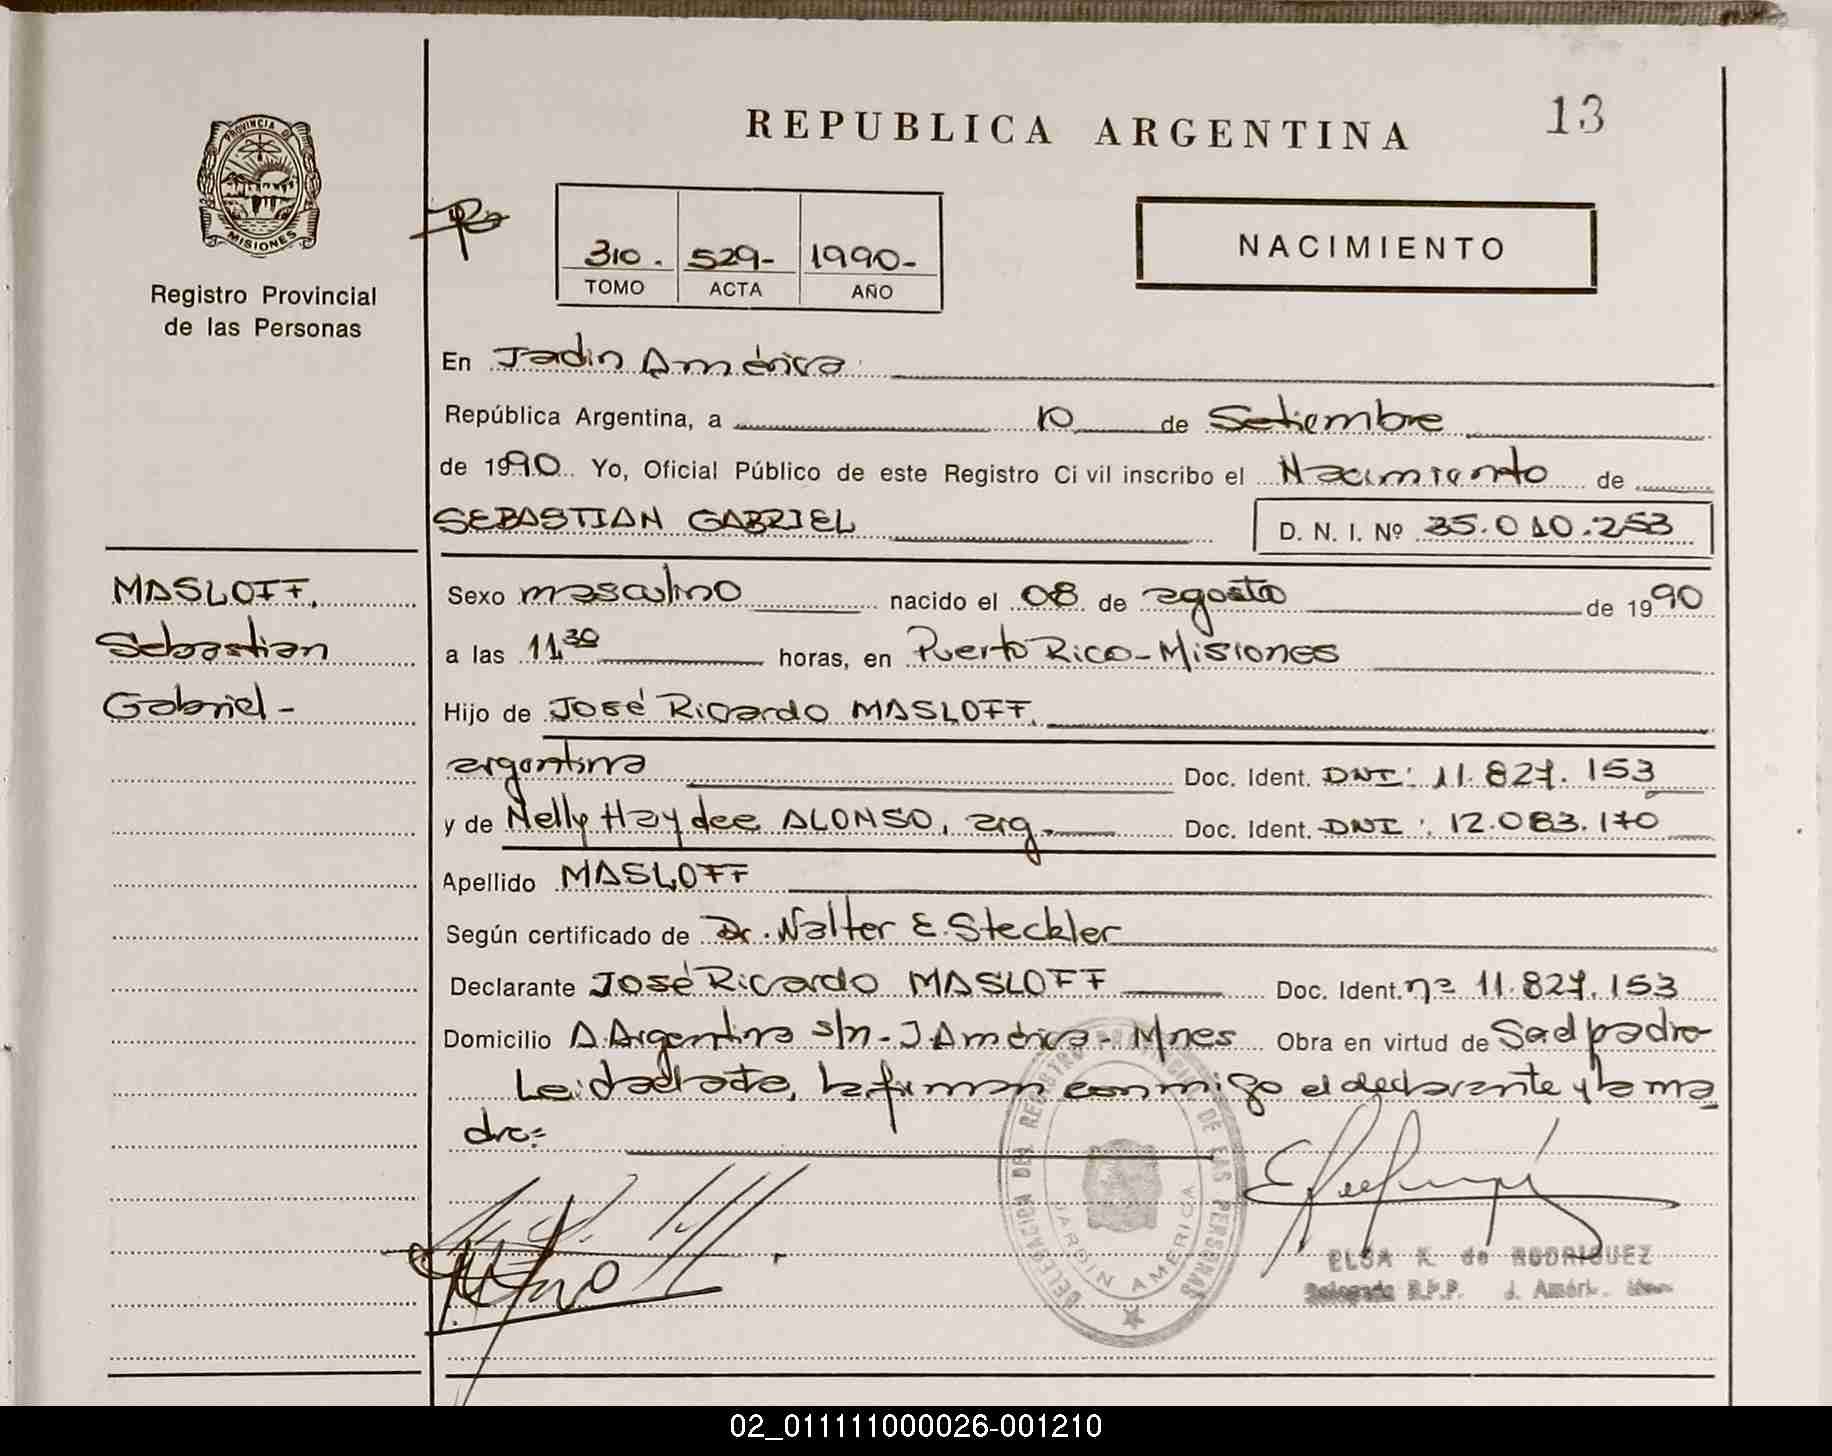 REPUBLICA ARGENTINA
13
PROVINCIA DE
MISIONES
Registro Provincial
de las Personas
310. 529- 1990-
TOMO ACTA AÑO
NACIMIENTO
En Jadin América
República Argentina, a 10 de Setiembre
de 1990. Yo, Oficial Público de este Registro Civil inscribo el Nacimiento de
SEBASTIAN GABRIEL D. N. I. Nº 35.010.253
MASLOFF,
Sebastian
Gabriel-
Sexo masculino nacido el 08 de agosto de 1990
a las 11,30 horas, en Puerto Rico-Misiones
Hijo de José Ricardo MASLOFF,
argentina Doc. Ident. DNI: 11.827.153
y de Nelly Haydee ALONSO, arg. Doc. Ident. DNI: 12.083.170
Apellido MASLOFF
Según certificado de Dr. Walter E. Steckler
Declarante José Ricardo MASLOFF Doc. Ident. nº 11.827.153
Domicilio A. Argentina s/n-J. América-Mnes Obra en virtud de Ser el padre
Leida el acta, la firman conmigo el declarante y la ma
dre=
DELEGACION DEL REGISTRO PROVINCIAL DE LAS PERSONAS
JARDIN AMERICA
ELSA K. de RODRIGUEZ
Delegada R.P.P. J. Améri.
02_011111000026-001210